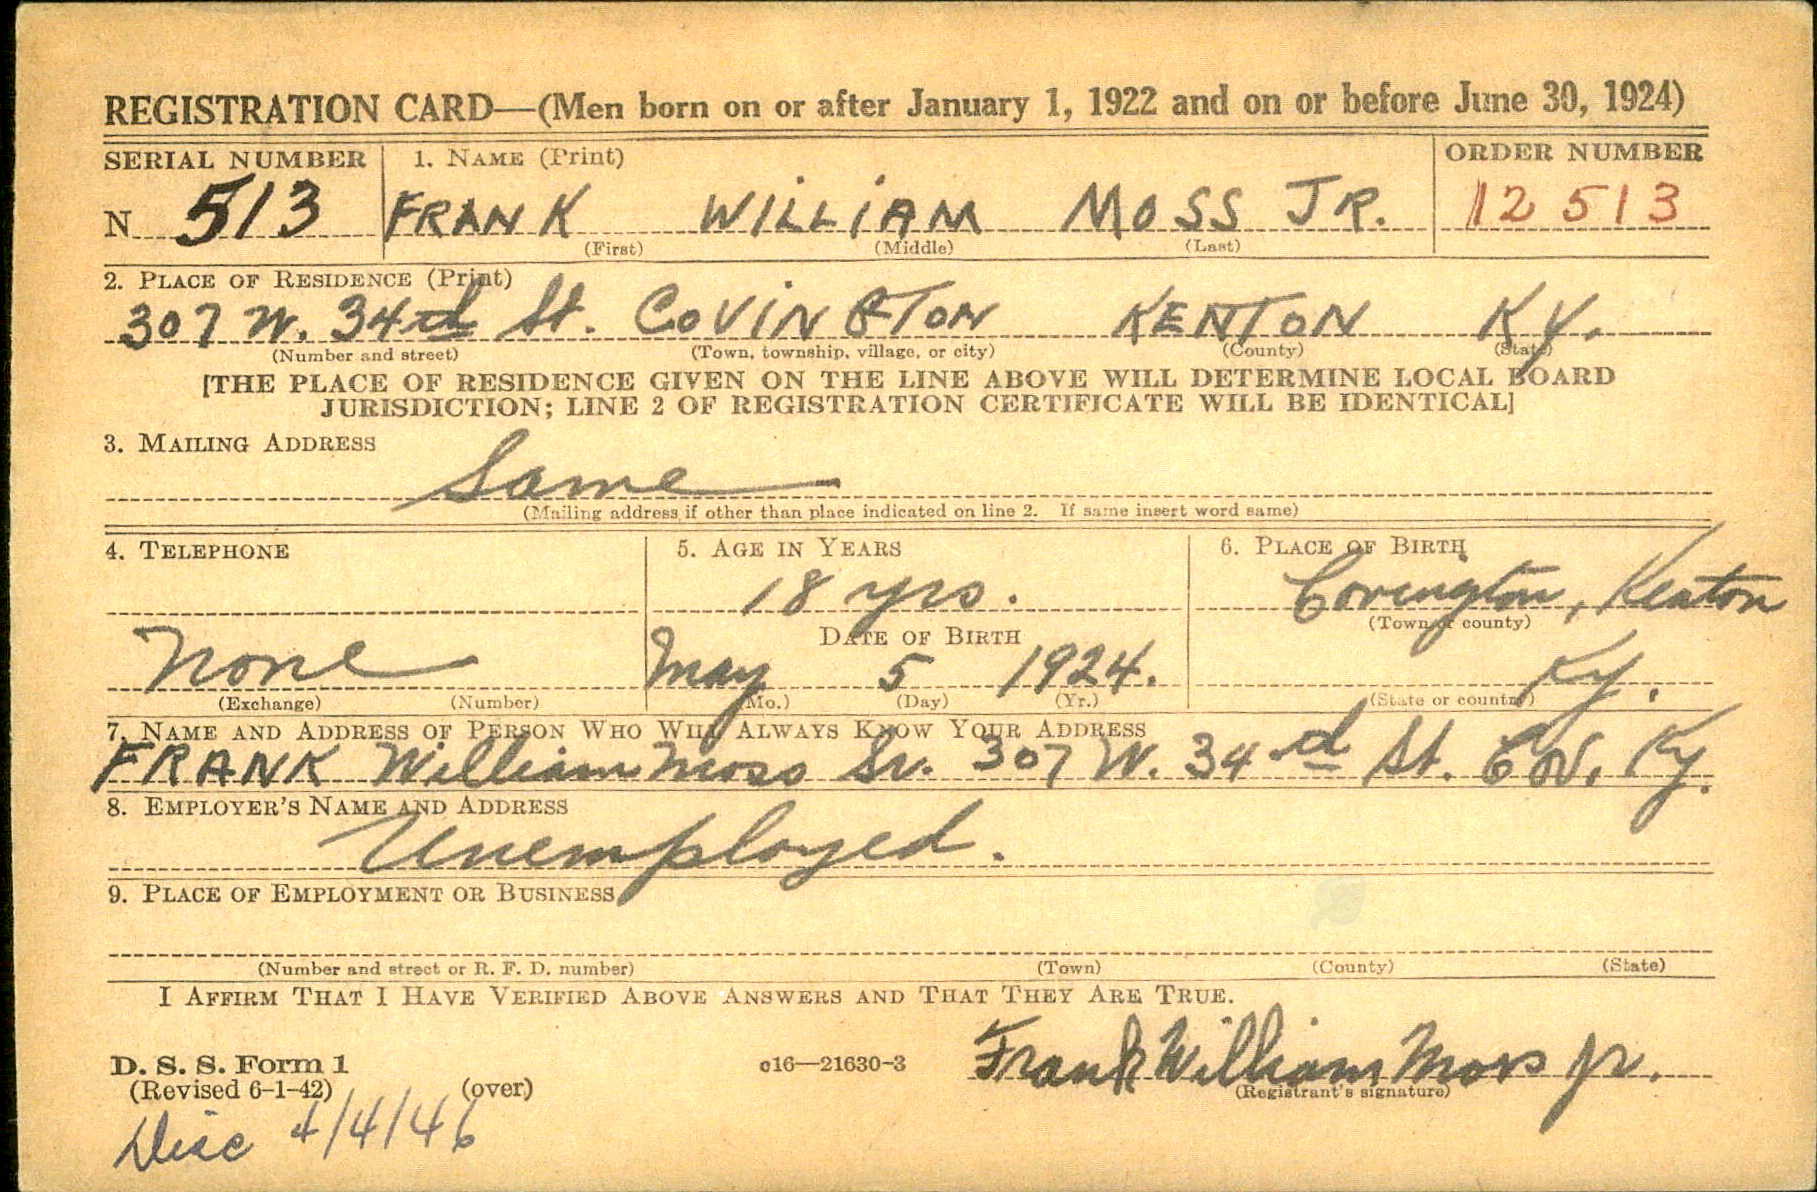 REGISTRATION CARD—(Men born on or after January 1, 1922 and on or before June 30, 1924)
SERIAL NUMBER 1. NAME (Print) ORDER NUMBER
N 513 FRANK WILLIAM MOSS JR. 12513
(First) (Middle) (Last)
2. PLACE OF RESIDENCE (Print)
307 W. 34th St. COVINGTON KENTON KY.
(Number and street) (Town, township, village, or city) (County) (State)
[THE PLACE OF RESIDENCE GIVEN ON THE LINE ABOVE WILL DETERMINE LOCAL BOARD
JURISDICTION; LINE 2 OF REGISTRATION CERTIFICATE WILL BE IDENTICAL]
3. MAILING ADDRESS
Same
(Mailing address if other than place indicated on line 2. If same insert word same)
4. TELEPHONE 5. AGE IN YEARS 6. PLACE OF BIRTH
18 yrs. Covington, Kenton
DATE OF BIRTH (Town or county)
None May 5 1924. Ky.
(Exchange) (Number) (Mo.) (Day) (Yr.) (State or country)
7. NAME AND ADDRESS OF PERSON WHO WILL ALWAYS KNOW YOUR ADDRESS
FRANK William Moss Sr. 307 W. 34d St. Cov. Ky.
8. EMPLOYER'S NAME AND ADDRESS
Unemployed.
9. PLACE OF EMPLOYMENT OR BUSINESS
(Number and street or R. F. D. number) (Town) (County) (State)
I AFFIRM THAT I HAVE VERIFIED ABOVE ANSWERS AND THAT THEY ARE TRUE.
D. S. S. Form 1 c16—21630-3 Frank William Moss Jr.
(Revised 6-1-42) (over) (Registrant's signature)
Disc 4/4/46